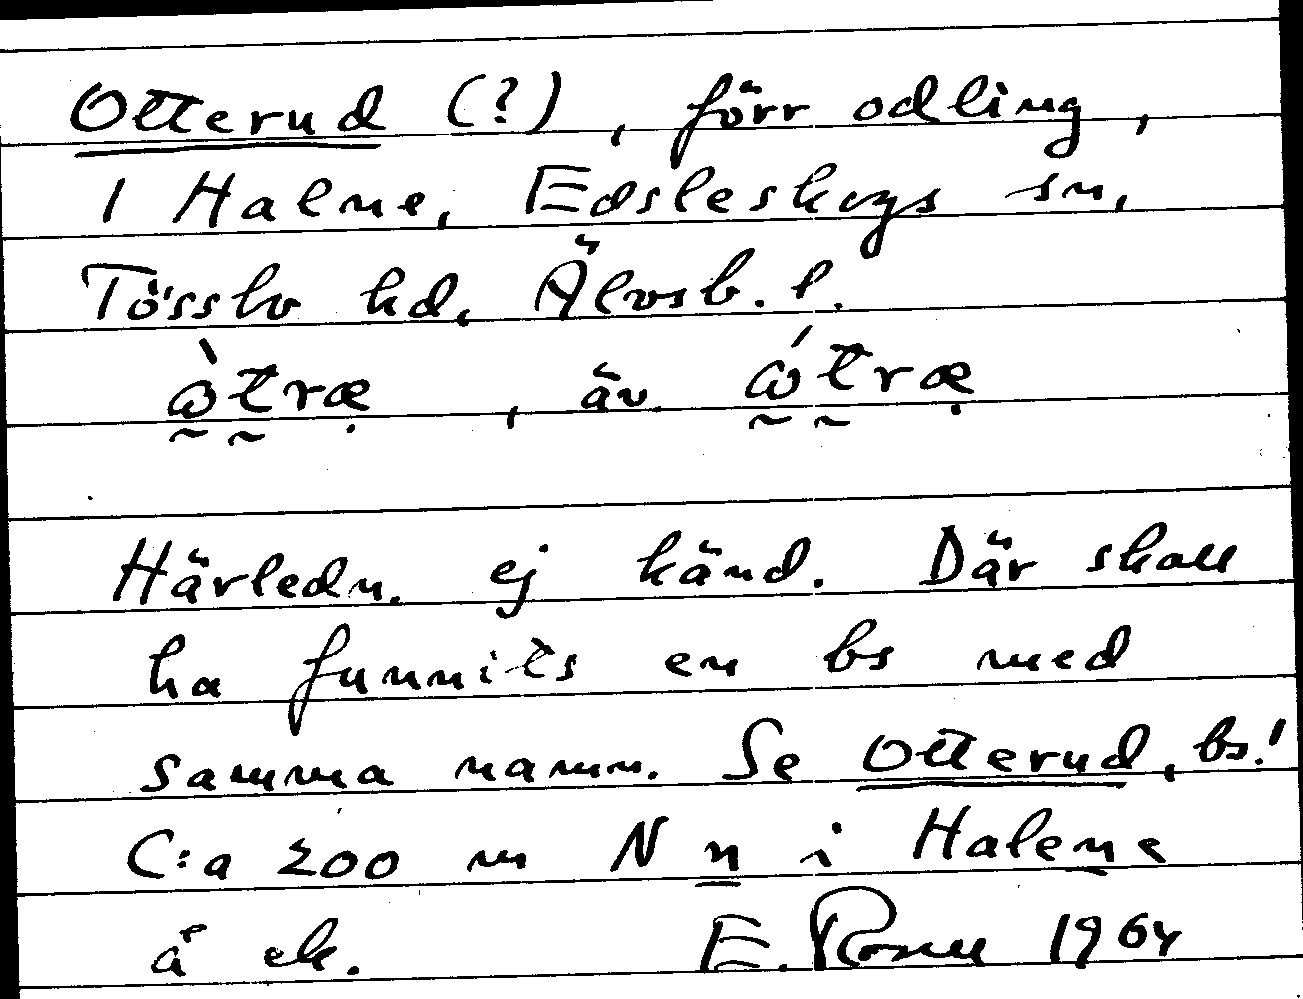 Otterud (?), förr odling,
1 Halne, Edsleskogs sn,
Tössbo hd, Älvsb. l.
ὼtræ̣, äv. ώtræ̣
Härledn. ej känd. Där skall
ha funnits en bs med
samma namn. Se Otterud, bs!
C:a 200 m N n i Halene
å ek. E. Rosell 1964